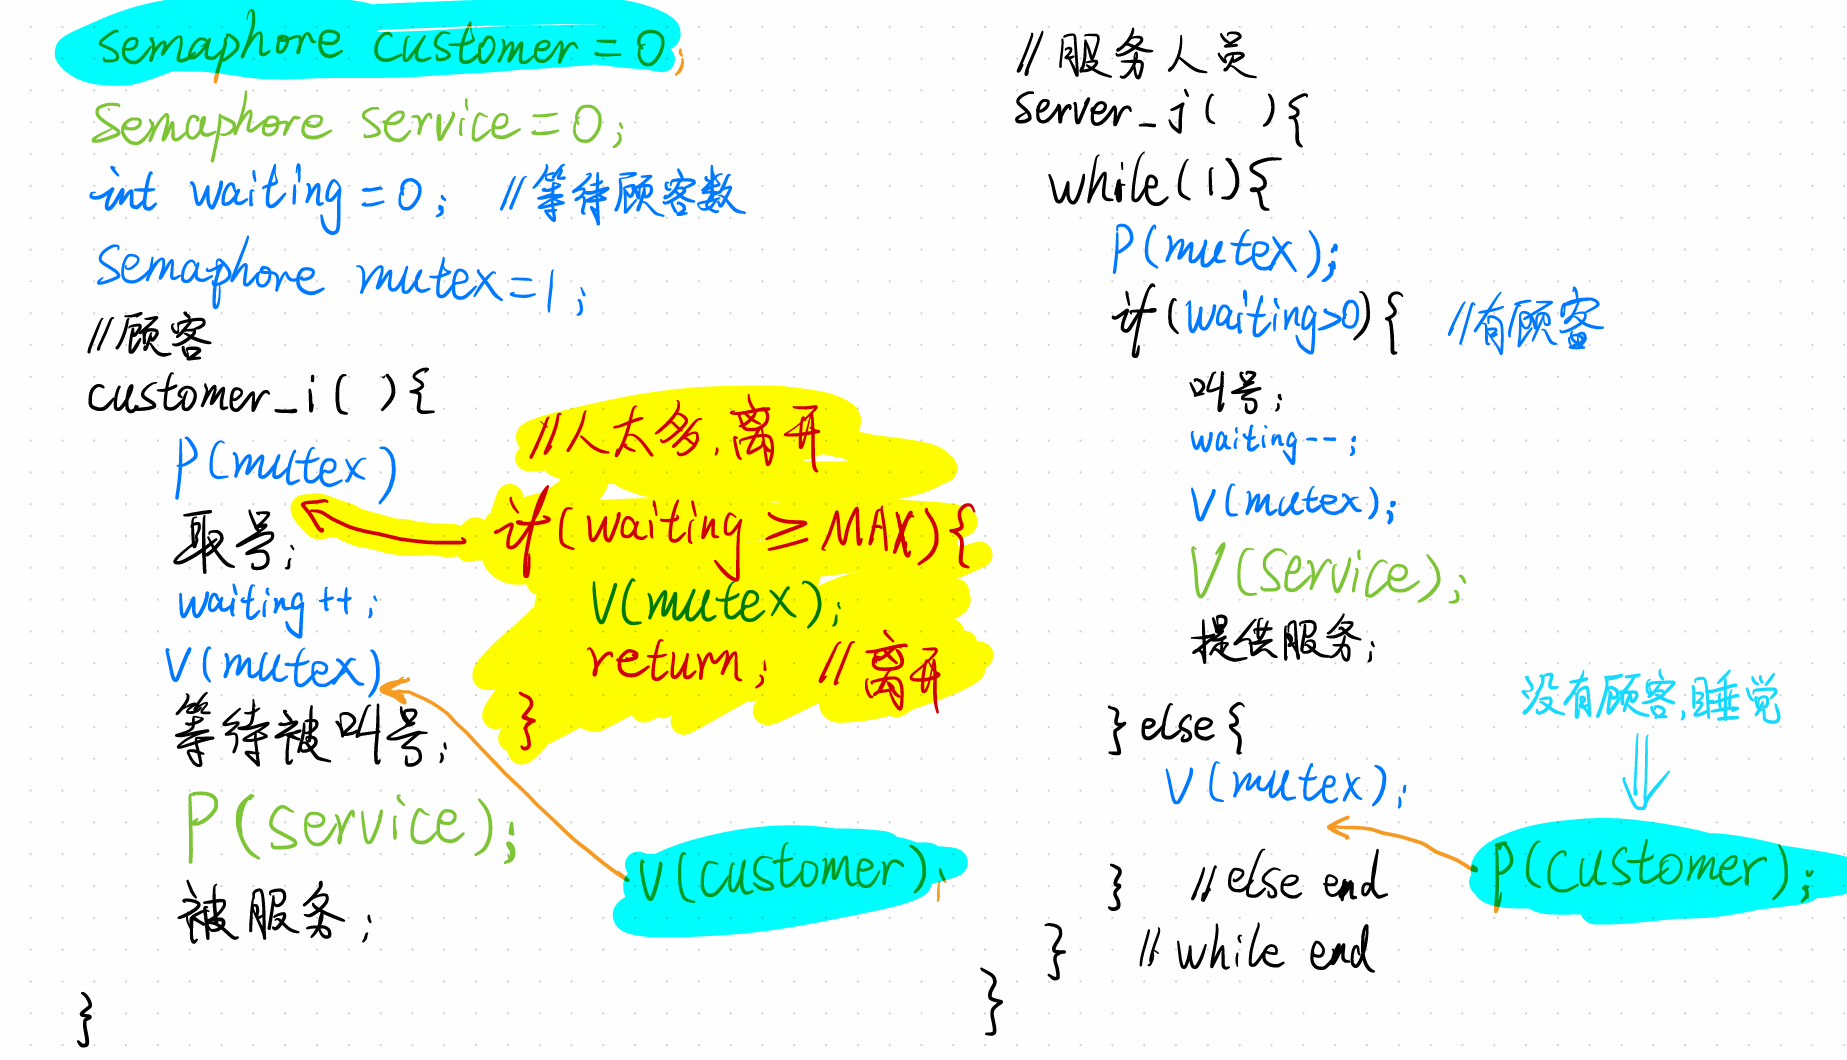 semaphore customer = 0;
Semaphore service = 0;
int waiting = 0; //等待顾客数
Semaphore mutex = 1;
//顾客
customer_i( ){
P(mutex)
取号;
waiting++;
V(mutex)
等待被叫号;
P(service);
被服务;
}
//人太多,离开
if(waiting ≥ MAX){
V(mutex);
return; //离开
}
V(customer);
//服务人员
server_j( ){
while(1){
P(mutex);
if(waiting>0){ //有顾客
叫号;
waiting--;
V(mutex);
V(service);
提供服务;
}else{
V(mutex);
没有顾客,睡觉
P(customer);
} //else end
} //while end
}